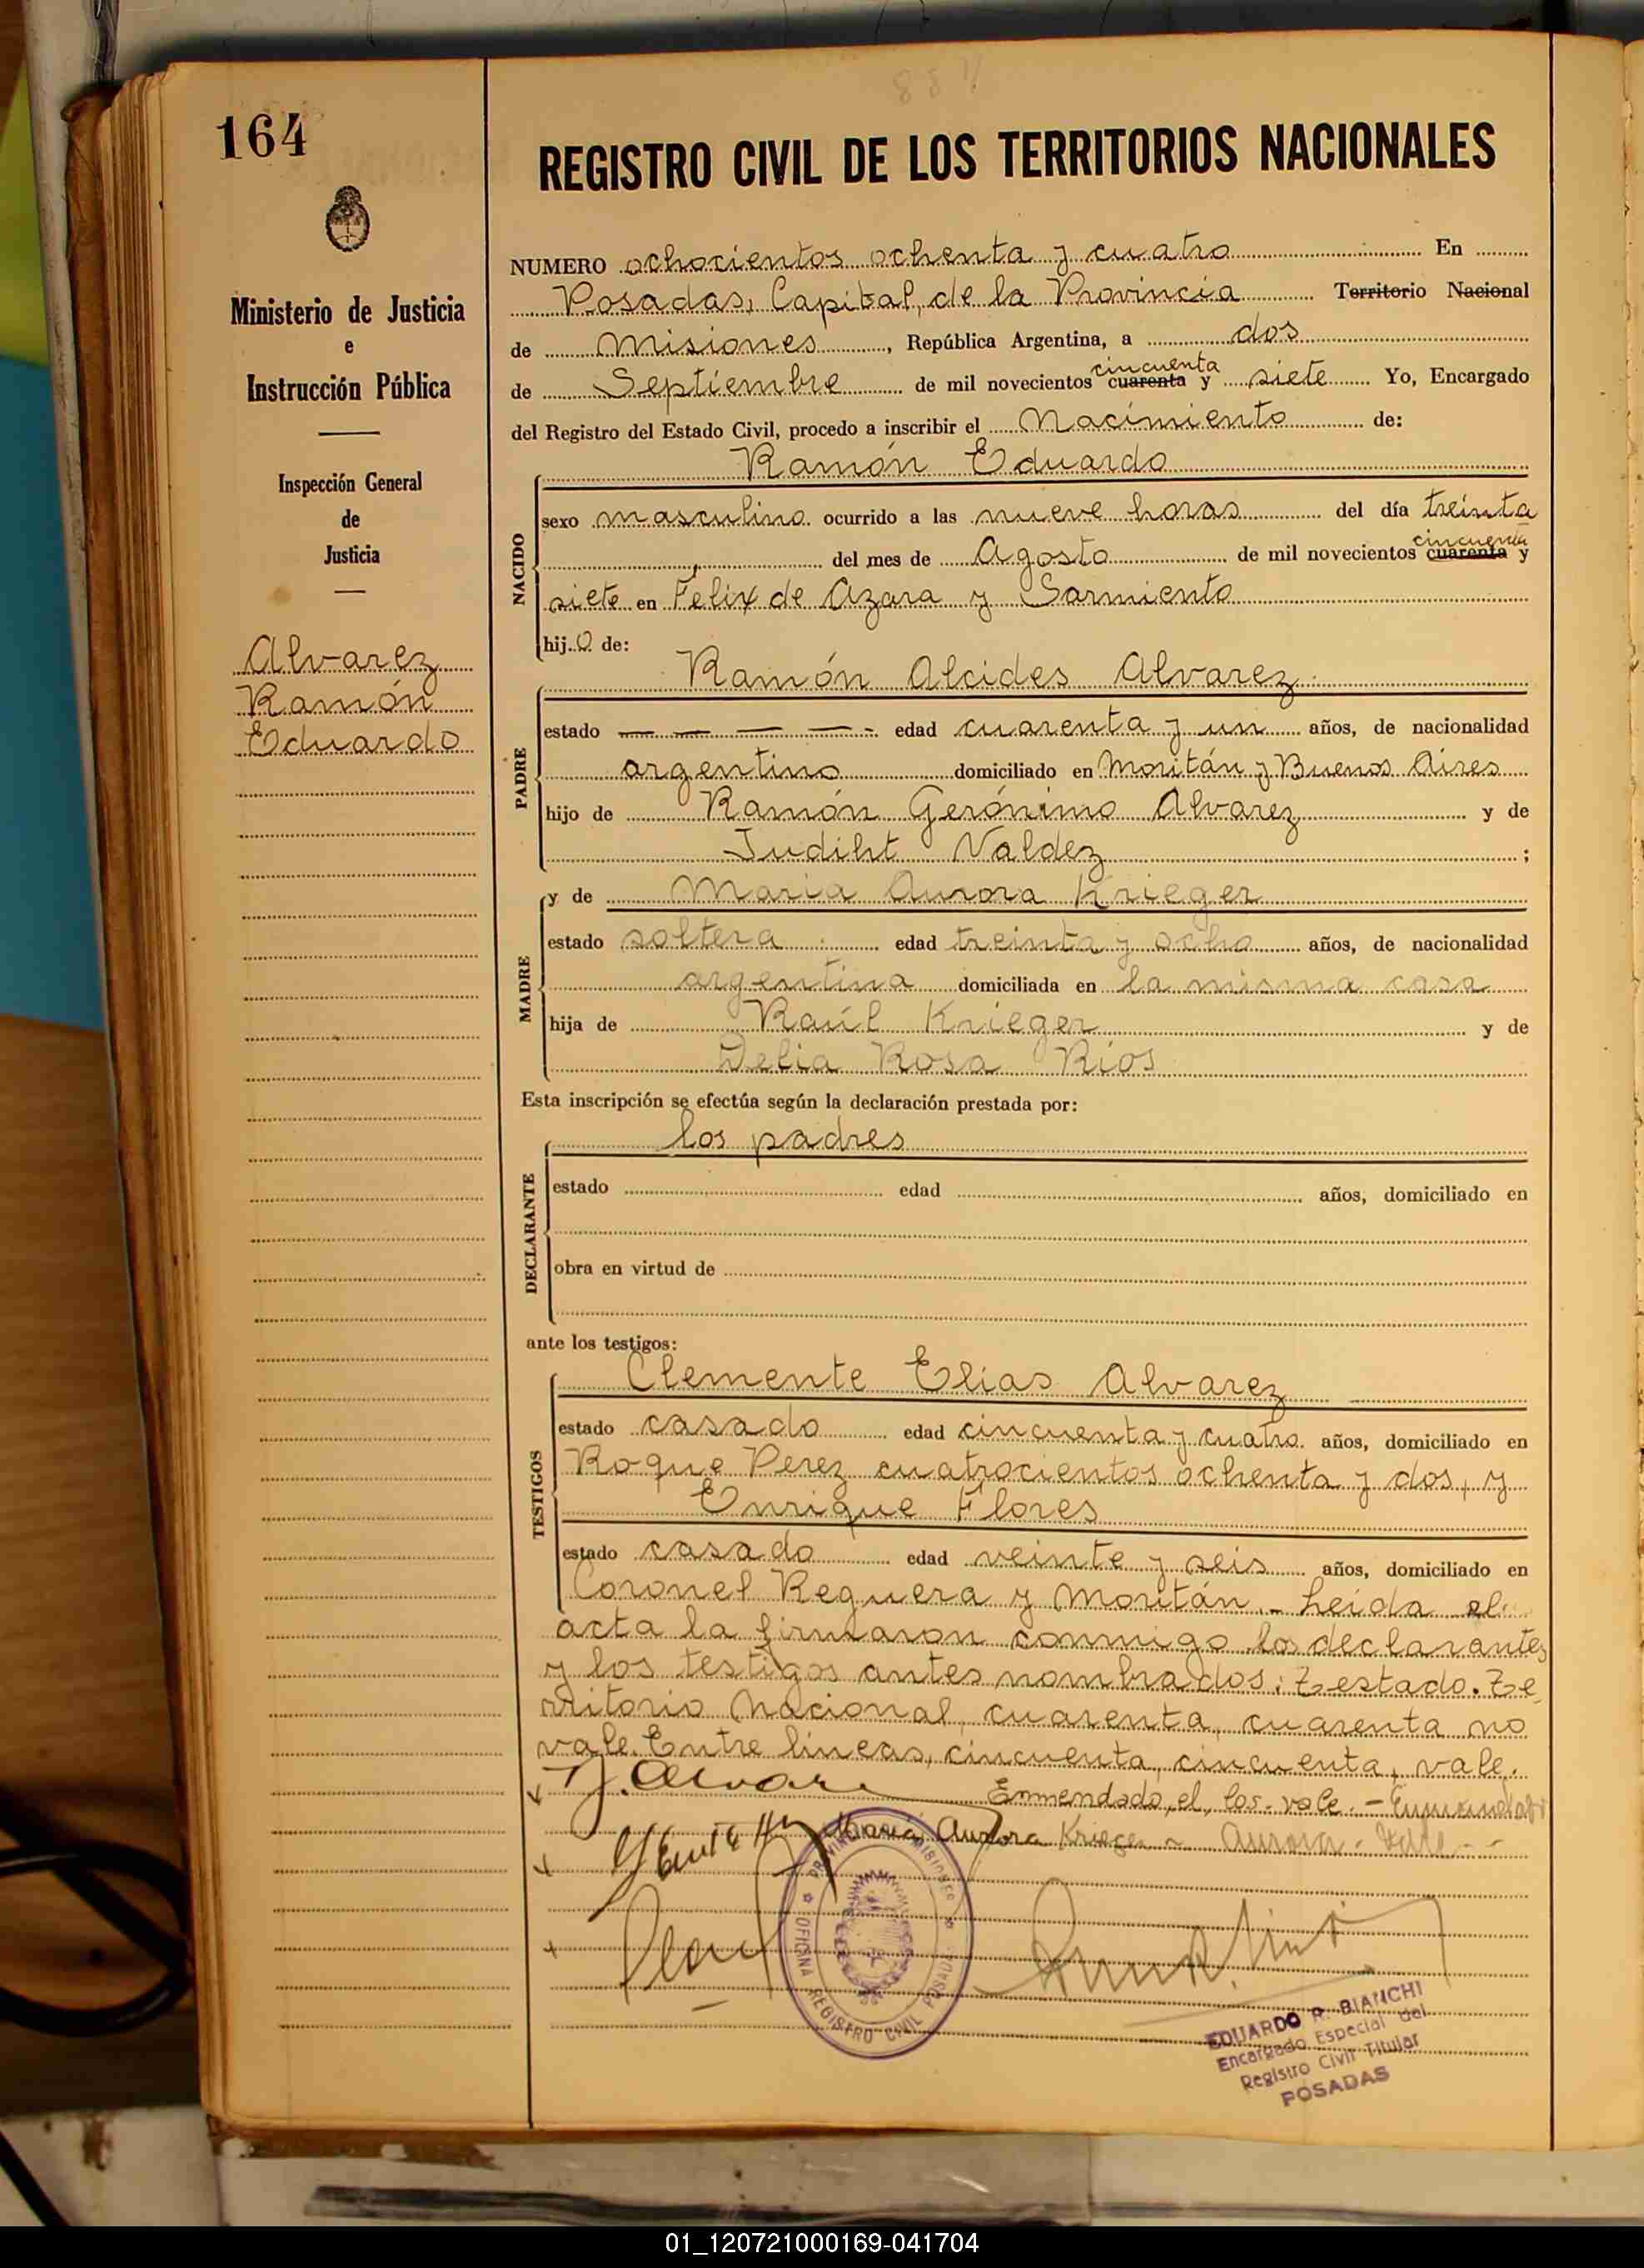 164
Ministerio de Justicia
e
Instrucción Pública
Inspección General
de
Justicia
Alvarez
Ramón
Eduardo
REGISTRO CIVIL DE LOS TERRITORIOS NACIONALES
NUMERO ochocientos ochenta y cuatro En
Posadas, Capital de la Provincia Territorio Nacional
de Misiones, República Argentina, a dos
cincuenta
de Septiembre de mil novecientos cuarenta y siete Yo, Encargado
del Registro del Estado Civil, procedo a inscribir el Nacimiento de:
Ramón Eduardo
NACIDO
sexo masculino ocurrido a las nueve horas del día treinta
cincuenta
del mes de Agosto de mil novecientos cuarenta y
siete en Félix de Azara y Sarmiento
hijo de:
Ramón Alcides Alvarez
PADRE
estado — — — — edad cuarenta y un años, de nacionalidad
argentino domiciliado en Moritán y Buenos Aires
hijo de Ramón Gerónimo Alvarez y de
Judiht Valdez ;
MADRE
y de Maria Aurora Krieger
estado soltera edad treinta y ocho años, de nacionalidad
argentina domiciliada en la misma casa
hija de Raúl Krieger y de
Delia Rosa Rios
Esta inscripción se efectúa según la declaración prestada por:
los padres
DECLARANTE
estado edad años, domiciliado en
obra en virtud de
ante los testigos:
Clemente Elias Alvarez
TESTIGOS
estado casado edad cincuenta y cuatro años, domiciliado en
Roque Perez cuatrocientos ochenta y dos, y
Enrique Flores
estado casado edad veinte y seis años, domiciliado en
Coronel Reguera y Moritán.- Leída el
acta la firmaron conmigo los declarantes
y los testigos antes nombrados: Testado. Te
rritorio Nacional, cuarenta, cuarenta no
vale. Entre lineas, cincuenta, cincuenta, vale.
Enmendado, el, los. vale.-
María Aurora Krieger Aurora
PROVINCIA DE MISIONES
OFICINA REGISTRO CIVIL POSADAS
EDUARDO R. BIANCHI
Encargado Especial del
Registro Civil Titular
POSADAS
01_120721000169-041704